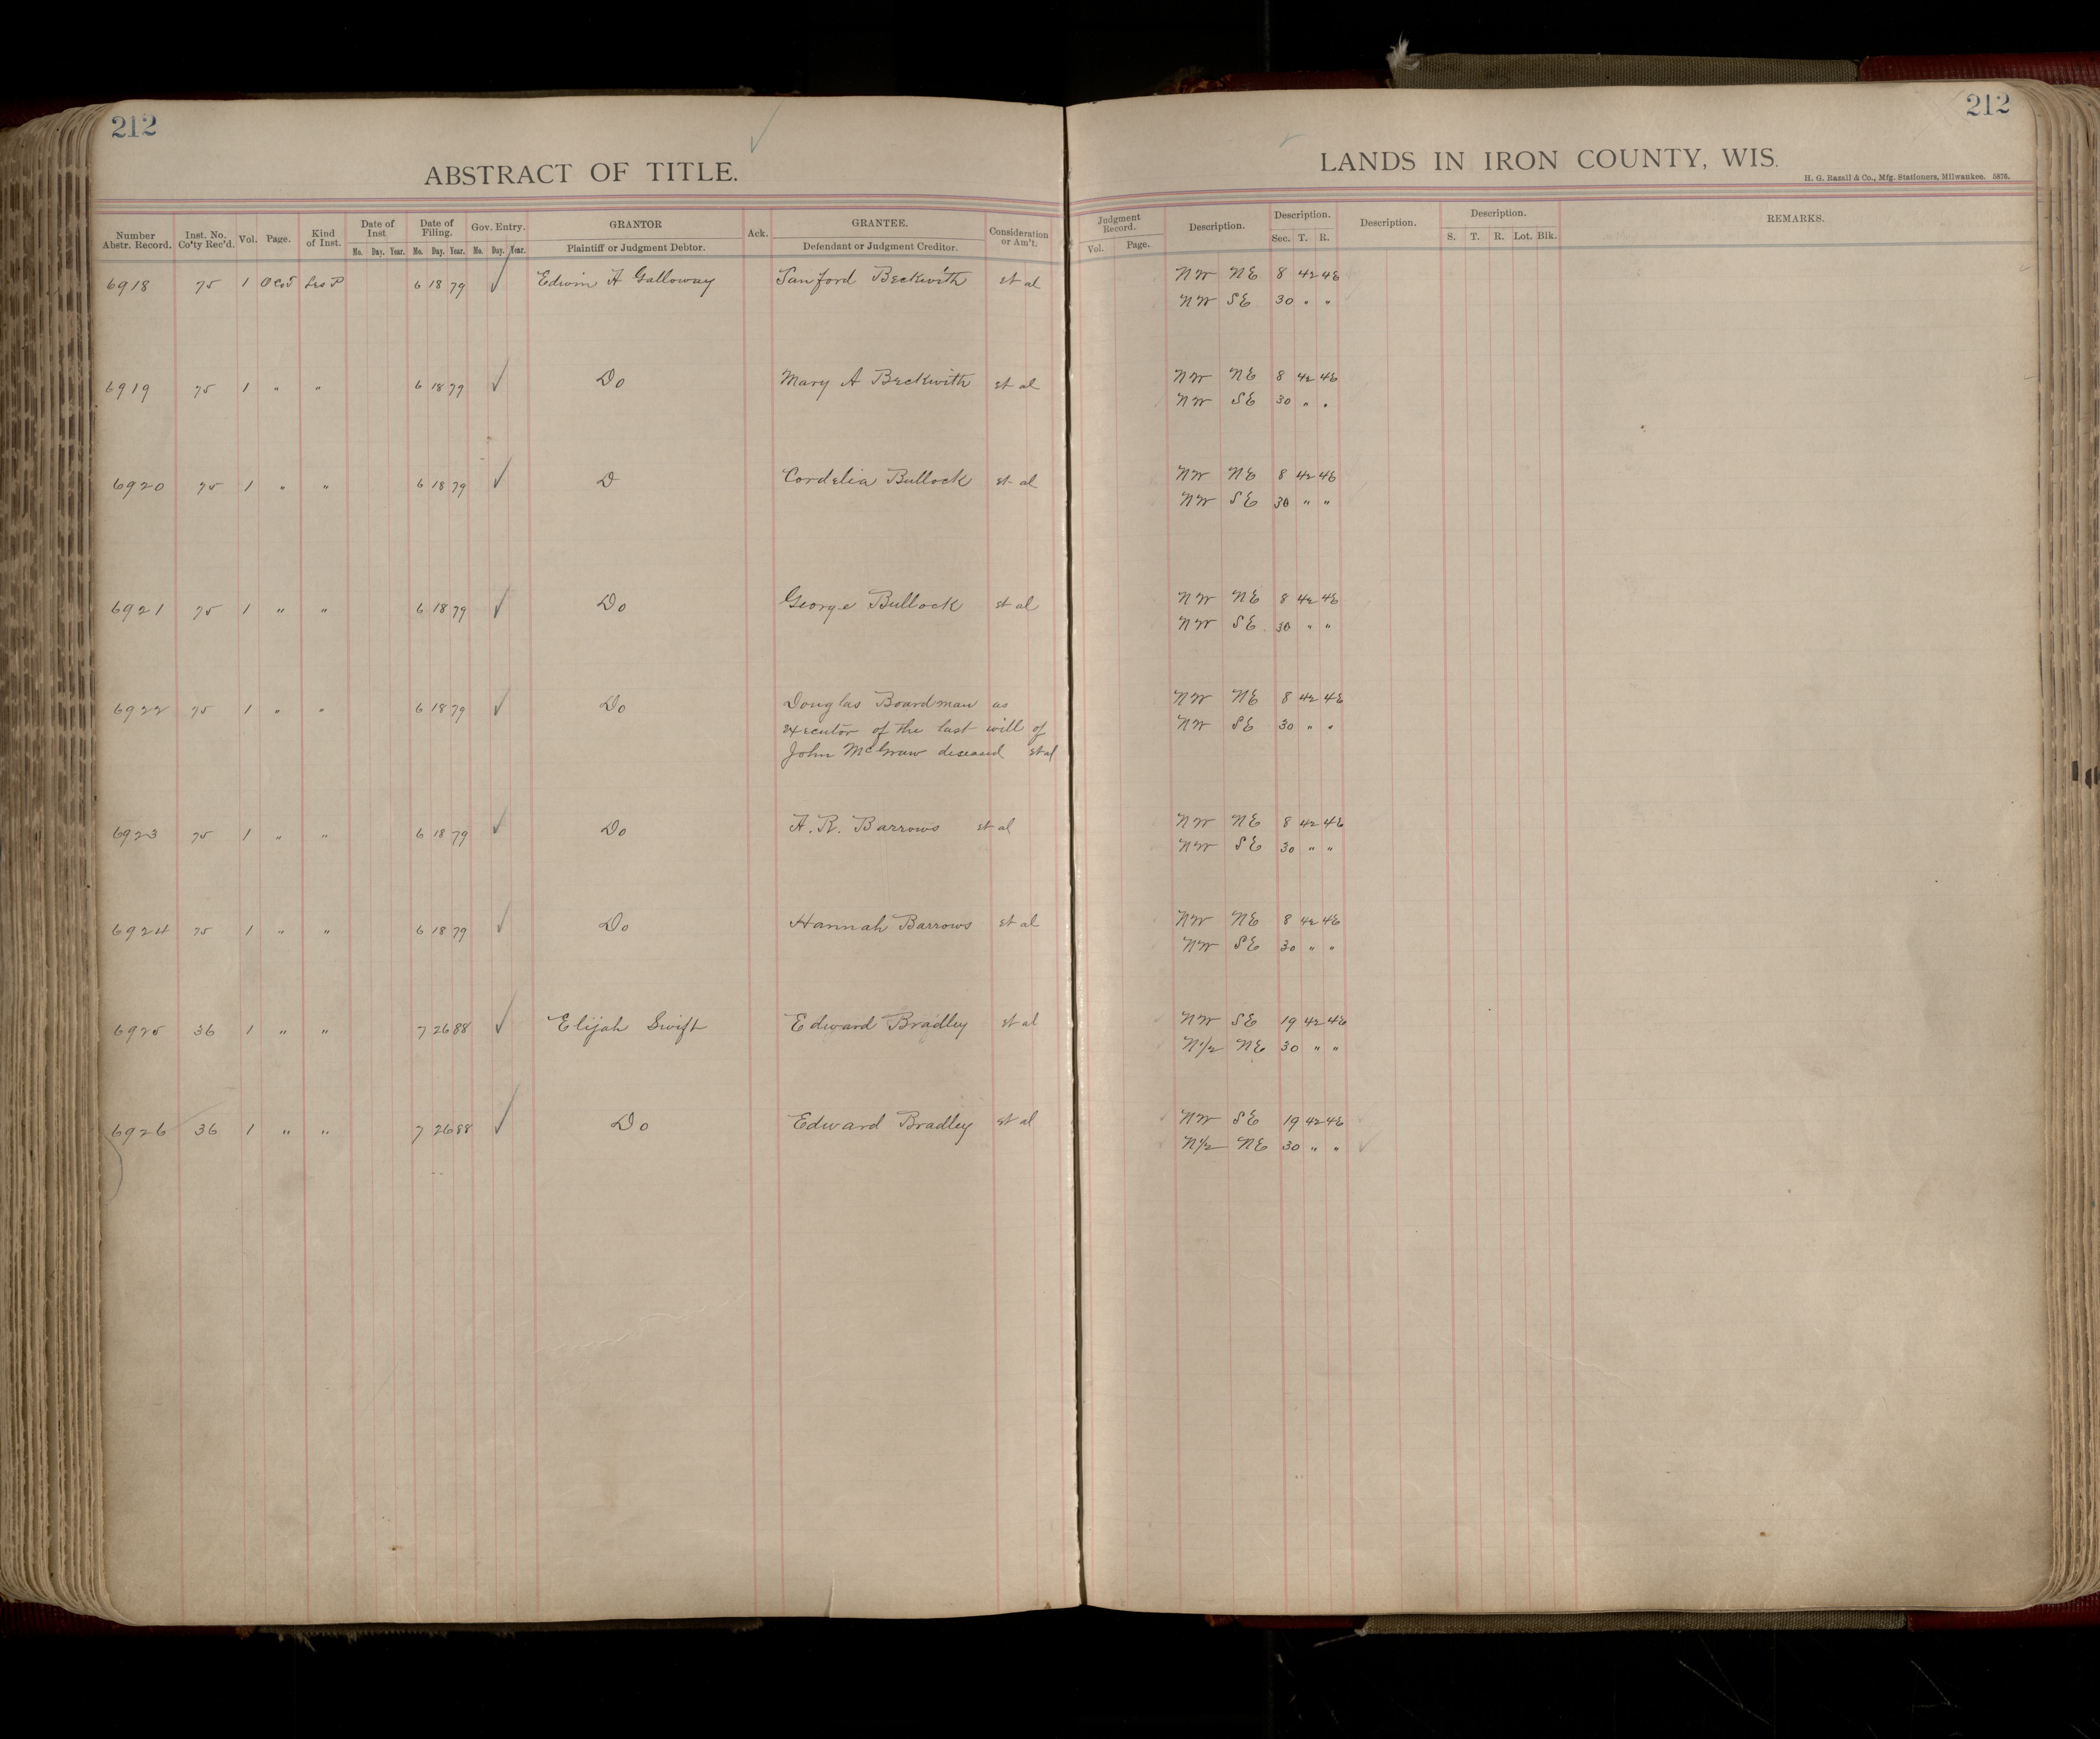 212
ABSTRACT OF TITLE.
Number Abstr. Record. Inst. No. Co'ty Rec'd. Vol. Page. Kind of Inst. Date of Inst Mo. Day. Year. Date of Filing. Mo. Day. Year. Gov. Entry. Mo. Day. Year. GRANTOR Plaintiff or Judgment Debtor. Ack. GRANTEE. Defendant or Judgment Creditor. Consideration or Am't.
6918 75 1 Lis P 6 18 79 Edwin A Galloway Sanford Beckwith et al
6919 75 1 " " 6 18 79 Do Mary A Beckwith et al
6920 75 1 " " 6 18 79 D Cordelia Bullock et al
6921 75 1 " " 6 18 79 Do George Bullock et al
6922 75 1 " " 6 18 79 Do Douglas Boardman as
executor of the last will of
John McGraw deceased et al
6923 75 1 " " 6 18 79 Do A. R. Barrows et al
6924 75 1 " " 6 18 79 Do Hannah Barrows et al
6925 36 1 " " 7 26 88 Elijah Swift Edward Bradley et al
6926 36 1 " " 7 26 88 Do Edward Bradley et al
212
LANDS IN IRON COUNTY, WIS.
H. G. Razall & Co., Mfg. Stationers, Milwaukee. 5876.
Judgment Record. Vol. Page. Description. Description. Sec. T. R. Description. Description. S. T. R. Lot. Blk. REMARKS.
NW NE 8 42 4E
NW SE 30 " "
NW NE 8 42 4E
NW SE 30 " "
NW NE 8 42 4E
NW SE 30 " "
NW NE 8 42 4E
NW SE 30 " "
NW NE 8 42 4E
NW SE 30 " "
NW NE 8 42 4E
NW SE 30 " "
NW NE 8 42 4E
NW SE 30 " "
NW SE 19 42 4E
N1/2 NE 30 " "
NW SE 19 42 4E
N1/2 NE 30 " "